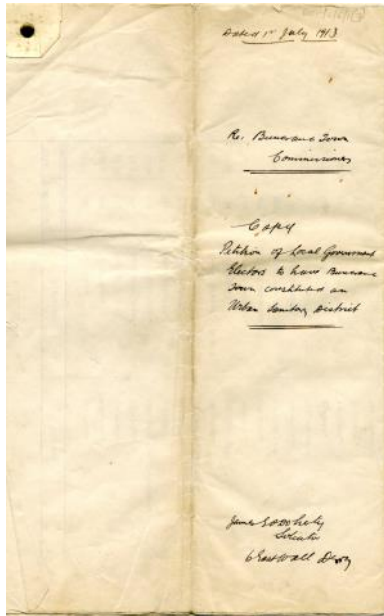 Dated 1st July 1913
Re. Buncrana Town
Commissioners
Copy
Petition of Local Government
Electors to have Buncrana
Town constituted an
Urban Sanitary District
James E O'Doherty
Solicitor
6 East Wall Derry